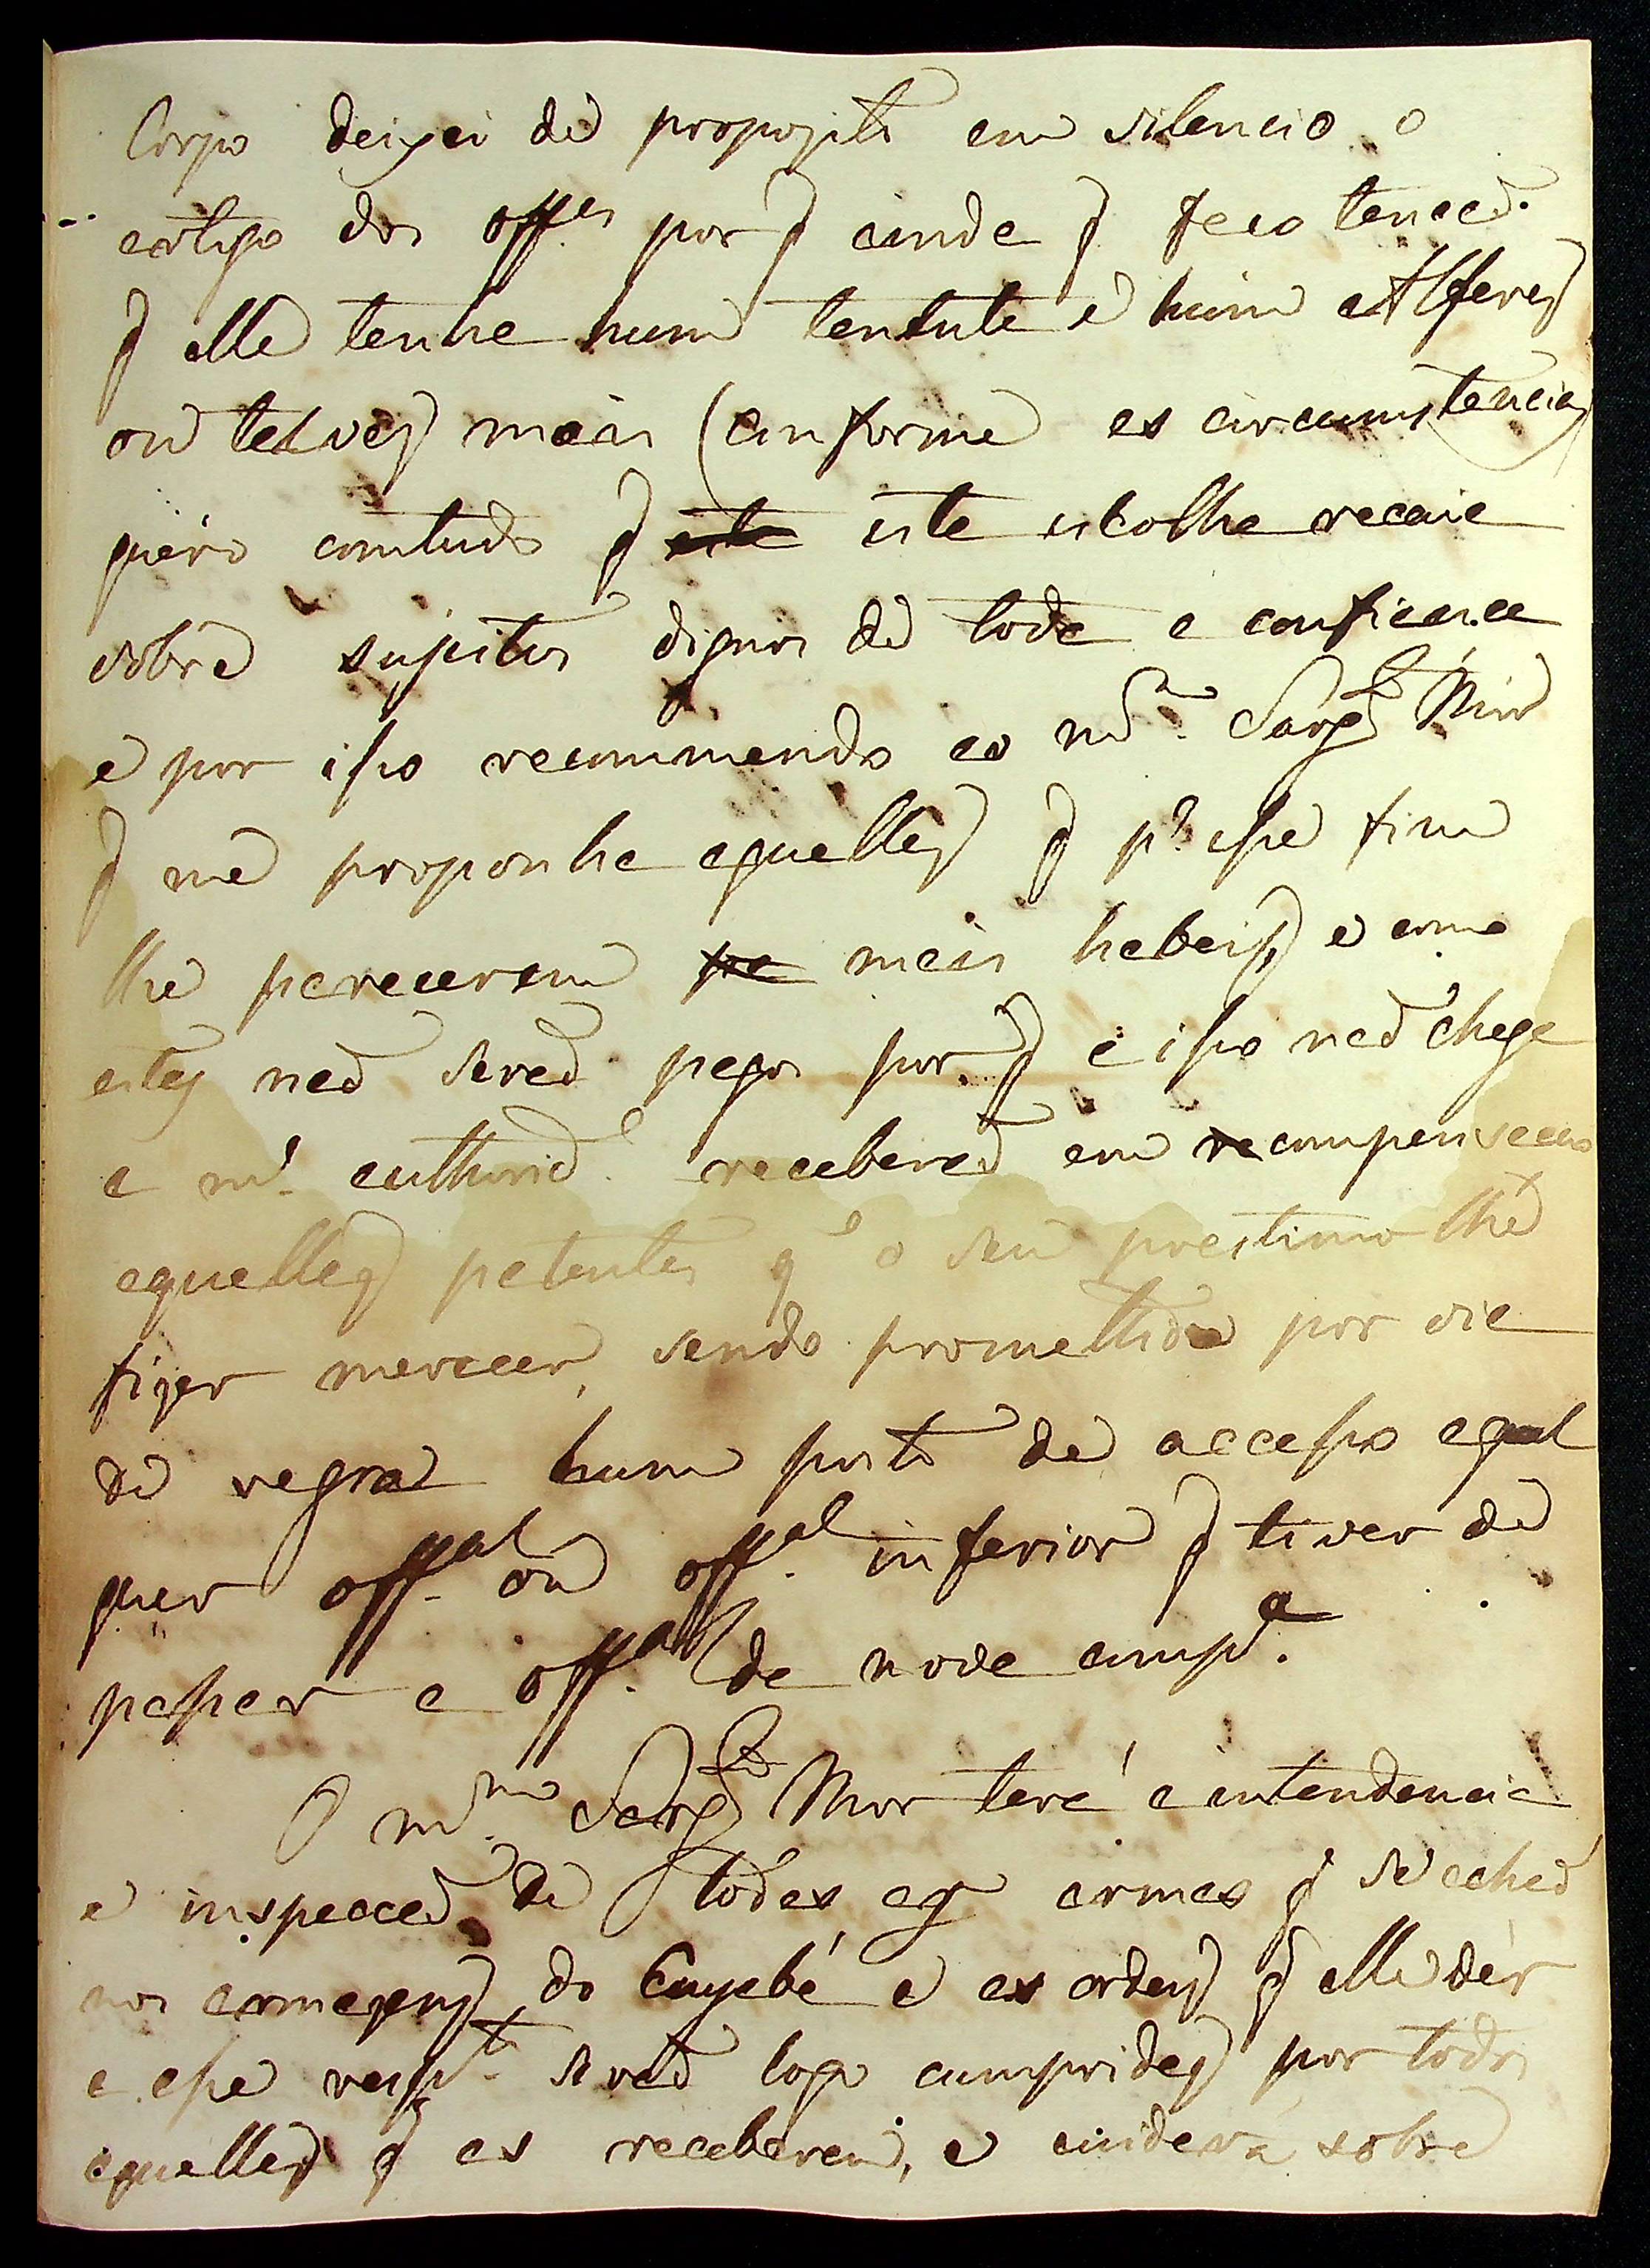 Corpo deixei de propozito em silencio o
artigo dos offes. por q̃ ainda q̃ faço tenção
q̃ elle tenha hum tenente e hum Alferes
ou talvez mais (conforme as circumstancias)
quero comtudo q̃ esta esta escolha recaia
sobre sujeitos dignos de toda a confiança
e por isso recommendo ao mmo. Sargto Mór
q̃ me proponha aquelles q̃ pa. esse fim
lhe parecerem pa mais habeis, e como
estes não serão pagos porq̃ a isso não chega
a ma. authorid.e receberão em recompensação
aquellas patentes q̃ o seu prestimo lhe
fizer merecer, sendo promettido por via
de regra hum posto de accesso a qual
quer offal. ou offal. inferior q̃ tiver de
passar a offal. da nova compa.
O mmo. Sargto Mor terá a intendencia
e inspecção de todas as armas q̃ se achão
nos armazens do Cuyabá e as ordens q̃ elle dér
a esse respto. serão logo cumpridas por todos
aquelles q̃ as receberem, e cuidará sobre